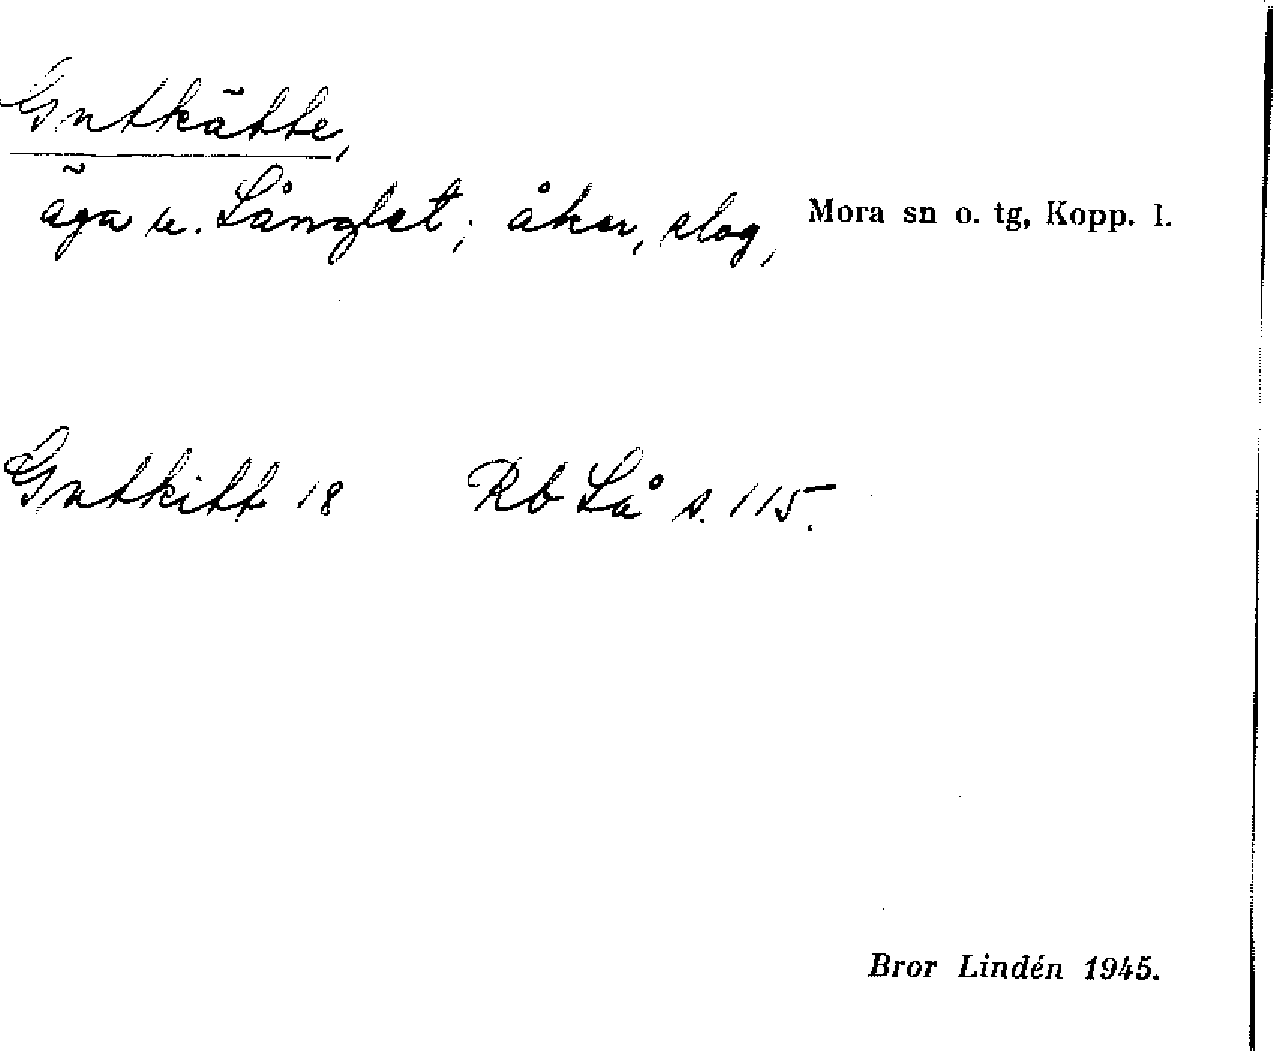 Gutkätte,
äga u. Långlet; åker, slog, Mora sn o. tg, Kopp. l.
Gutkitt 18 Rb Lå s. 115.
Bror Lindén 1945.